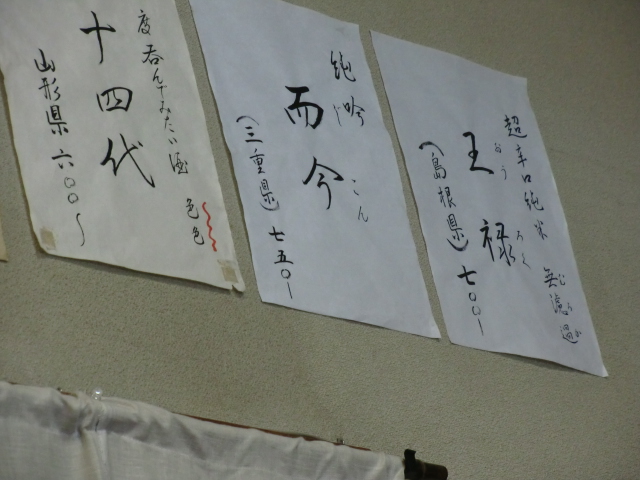 超辛口純米 無濾過
むろか
王禄
おうろく
(島根県) 七〇〇ー
純吟
而今
じ こん
(三重県) 七五〇ー
一度呑んでみたい酒
色色
十四代
山形県 六〇〇〜